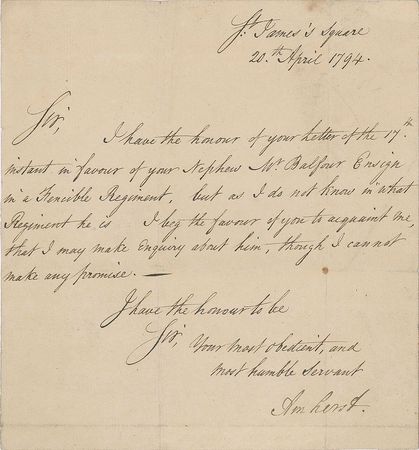 St. James's Square
20.th April 1794.
Sir,
I have the honour of your Letter of the 17.th
instant in favour of your Nephew Mr Balfour Ensign
in a Fencible Regiment, but as I do not know in what
Regiment he is I beg the favour of you to acquaint me,
that I may make Enquiry about him, though I cannot
make any promise. —
I have the honour to be
Sir,
Your most obedient, and
most humble Servant
Amherst.